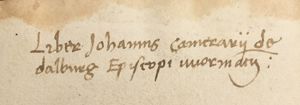 Liber Johannis Camerarij de
dalburg Episcopi wormaciē: